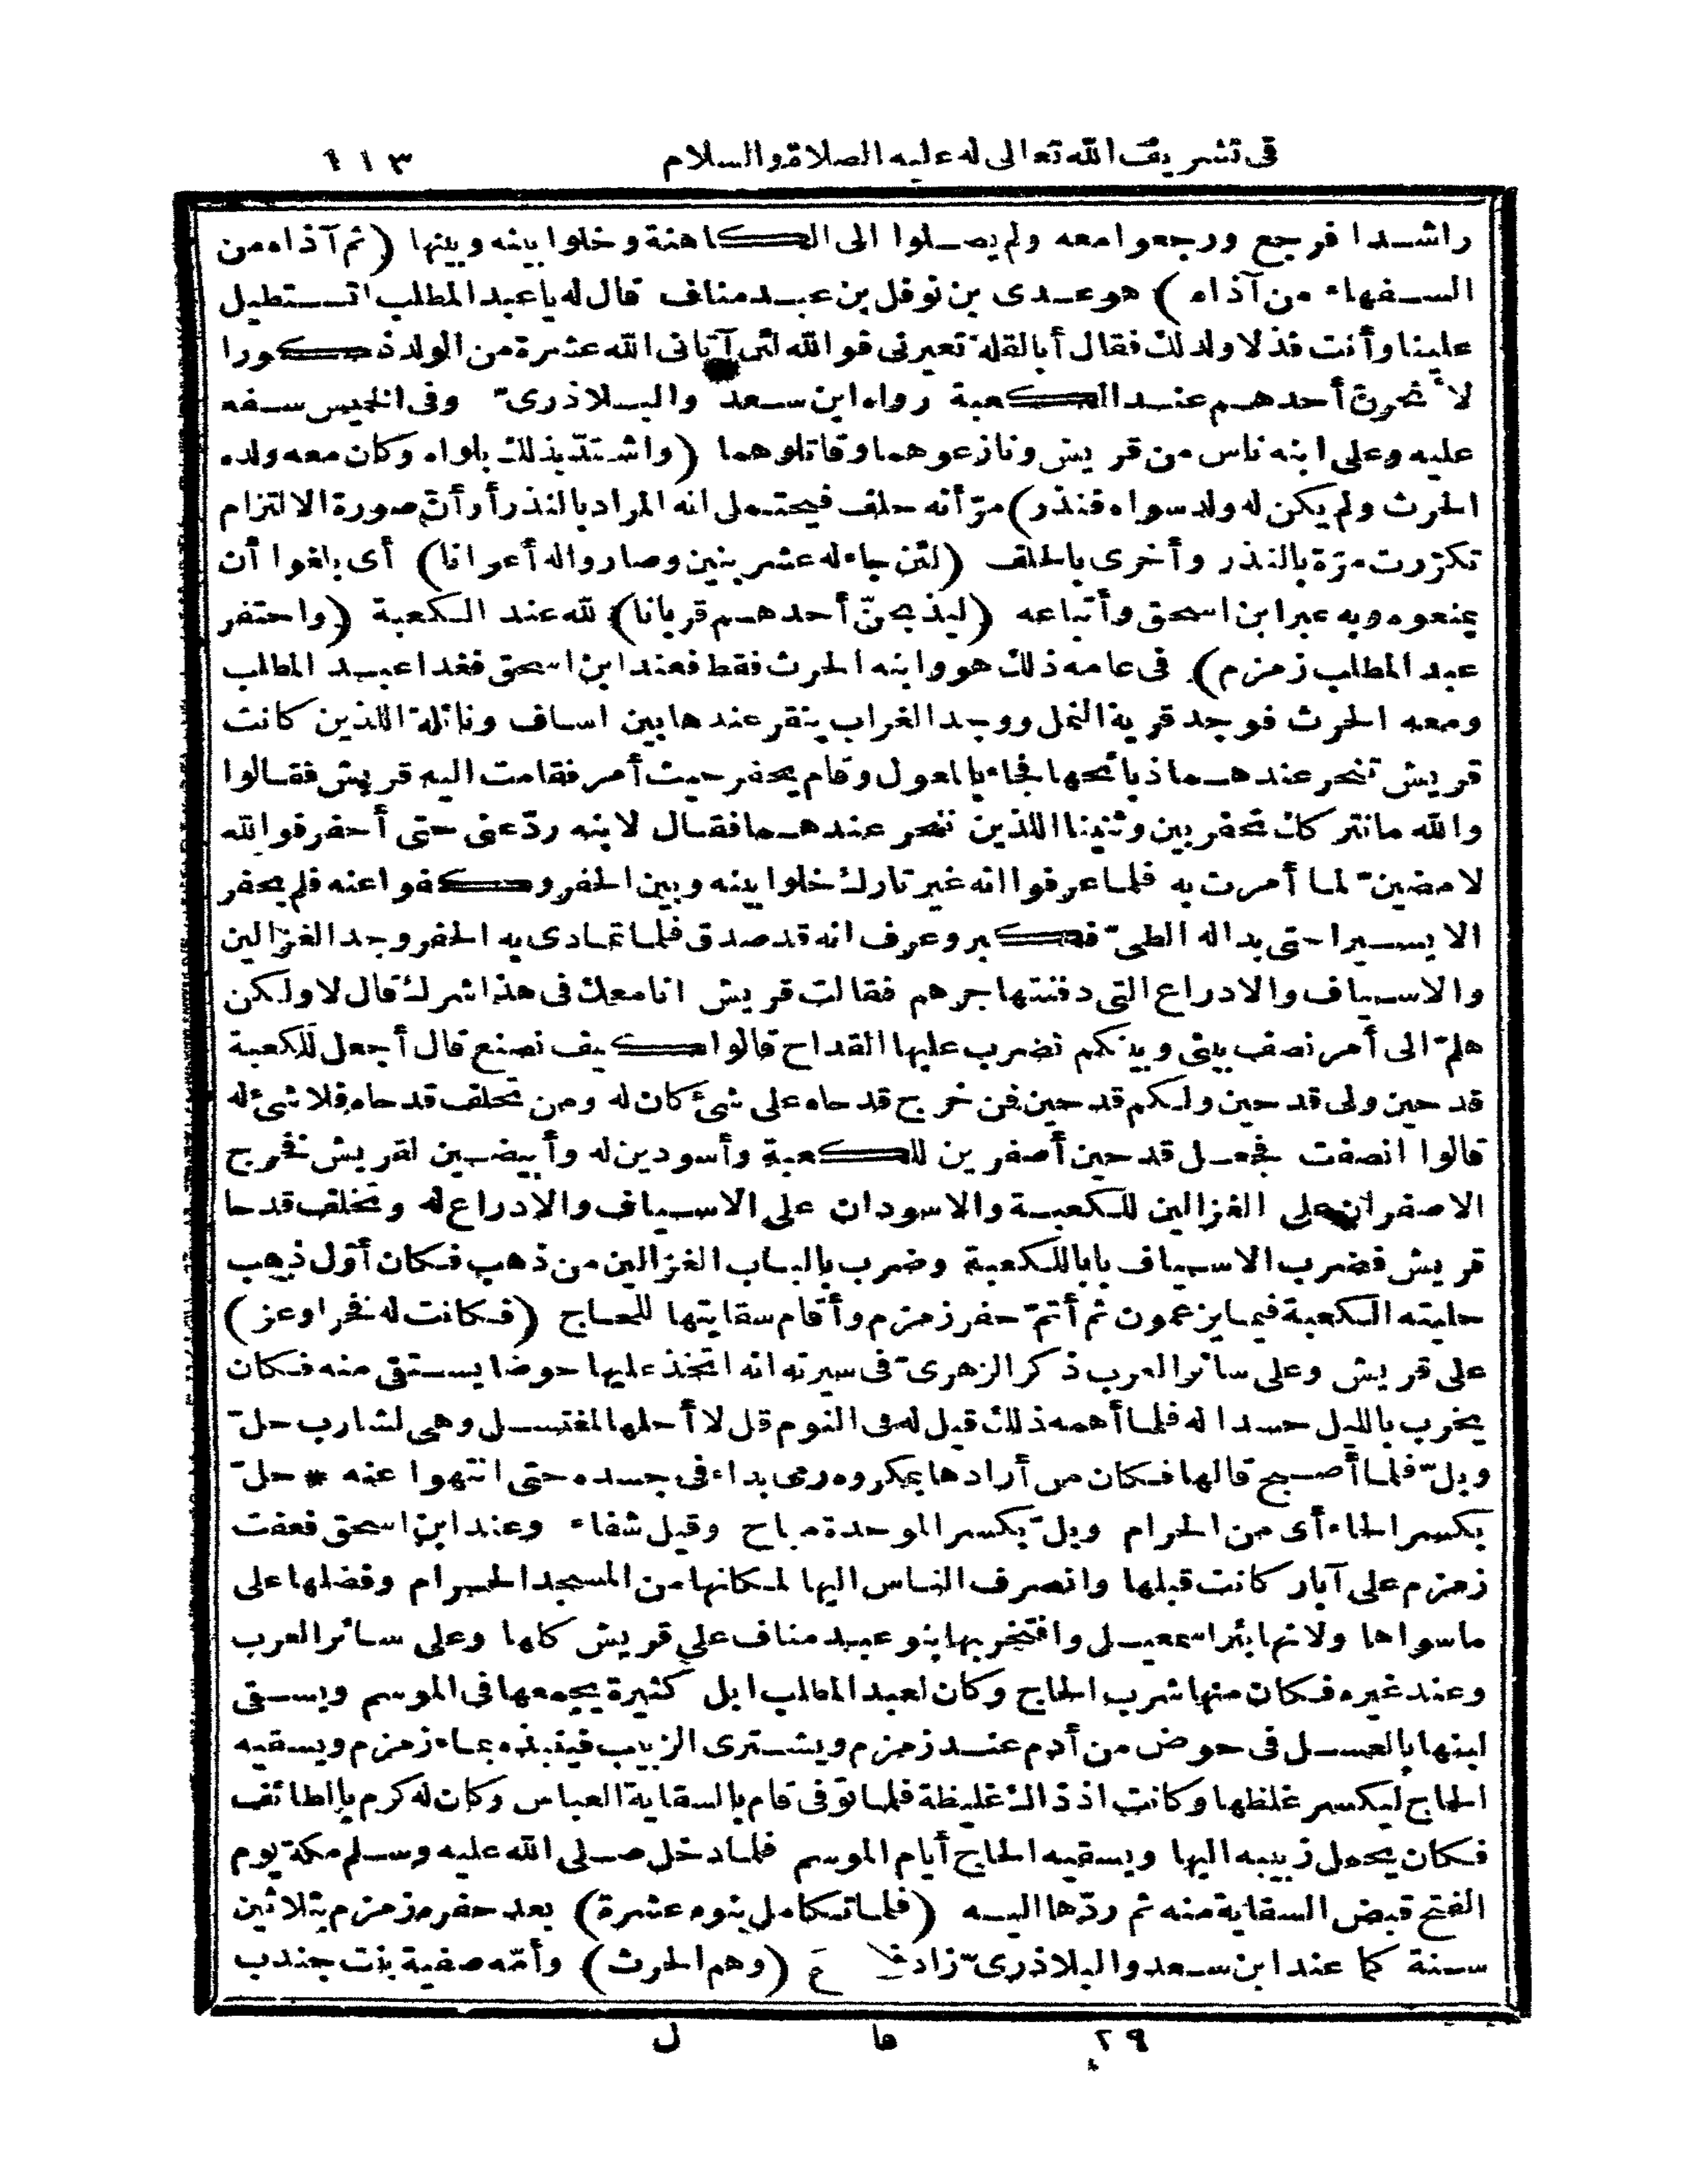 فى تشريف الله تعالى له عليه الصلاة والسلام ١١٣
راشدا فرجع ورجعوا معه ولم يصلوا الى الكاهنة وخلوا بينه وبينها (ثم آذاه من
السفهاء من آذاه) هو عدى بن نوفل بن عبد مناف قال له يا عبد المطلب اتستطيل
علينا وأنت فذ لا ولد لك فقال أبالقلة تعيرنى فوالله لئن آتانى الله عشرة من الولد ذكورا
لأنحرن أحدهم عند الكعبة رواه ابن سعد والبلاذرىّ وفى الخميس سفه
عليه وعلى ابنه ناس من قريش ونازعوهما وقاتلوهما (واشتدّ بذلك بلواه وكان معه ولده
الحرث ولم يكن له ولد سواه فنذر) مرّ أنه حلف فيحتمل انه المراد بالنذر أو أنّ صورة الالتزام
تكرّرت مرّة بالنذر وأخرى بالحلف (لئن جاء له عشر بنين وصاروا له أعوانا) أى بلغوا أن
يمنعوه وبه عبر ابن اسحق وأتباعه (ليذبحنّ أحدهم قربانا) لله عند الكعبة (واحتفر
عبد المطلب زمزم) فى عامه ذلك هو وابنه الحرث فقط فعند ابن اسحق فغدا عبد المطلب
ومعه الحرث فوجد قرية النمل ووجد الغراب ينقر عندها بين اساف ونائلة اللذين كانت
قريش تنحر عندهما ذبائحها فجاء بالمعول وقام يحفر حيث أمر فقامت اليه قريش فقالوا
والله ما نتركك تحفر بين وثنينا اللذين ننحر عندهما فقال لابنه ردّ عنى حتى أحفر فوالله
لامضينّ لما أمرت به فلما عرفوا انه غير تارك خلوا بينه وبين الحفر وكفوا عنه فلم يحفر
الا يسيرا حتى بدا له الطىّ فكبر وعرف انه قد صدق فلما تمادى به الحفر وجد الغزالين
والاسياف والادراع التى دفنتها جرهم فقالت قريش انا معك فى هذا شرك قال لا ولكن
هلمّ الى أمر نصف بينى وبينكم نضرب عليها القداح قالوا كيف نصنع قال أجعل للكعبة
قدحين ولى قدحين ولكم قدحين فمن خرج قدحاه على شئ كان له ومن تخلف قدحاه فلا شئ له
قالوا انصفت فجعل قدحين أصفرين للكعبة وأسودين له وأبيضين لقريش فخرج
الاصفران على الغزالين للكعبة والاسودان على الاسياف والادراع له وتخلف قدحا
قريش فضرب الاسياف بابا للكعبة وضرب بالباب الغزالين من ذهب فكان أوّل ذهب
حليته الكعبة فيما يزعمون ثم أتمّ حفر زمزم وأقام سقايتها للحاج (فكانت له فخرا وعز)
على قريش وعلى سائر العرب ذكر الزهرىّ فى سيرته انه اتخذ عليها حوضا يستقى منه فكان
يخرب بالليل حسدا له فلما أهمه ذلك قيل له فى النوم قل لا أحلها لمغتسل وهى لشارب حلّ
وبلّ فلما أصبح قالها فكان من أرادها بمكروه رمى بداء فى جسده حتى انتهوا عنه * حلّ
بكسر الحاء أى من الحرام وبلّ بكسر الموحدة مباح وقيل شفاء وعند ابن اسحق فعفت
زمزم على آبار كانت قبلها وانصرف الناس اليها لمكانها من المسجد الحرام وفضلها على
ما سواها ولانها بئر اسمعيل وافتخر بها بنو عبد مناف على قريش كلها وعلى سائر العرب
وعند غيره فكان منها شرب الحاج وكان لعبد المطلب ابل كثيرة يجمعها فى الموسم ويسقى
لبنها بالعسل فى حوض من أدم عند زمزم ويشترى الزبيب فينبذه بماء زمزم ويسقيه
الحاج ليكسر غلظها وكانت اذ ذاك غليظة فلما توفى قام بالسقاية العباس وكان له كرم بالطائف
فكان يحمل زبيبه اليها ويسقيه الحاج أيام الموسم فلما دخل صلى الله عليه وسلم مكة يوم
الفتح قبض السقاية منه ثم ردّها اليه (فلما تكامل بنوه عشرة) بعد حفره زمزم بثلاثين
سنة كما عند ابن سعد والبلاذرىّ زاد (وهم الحرث) وأمّه صفية بنت جندب
٢٩ ها ل